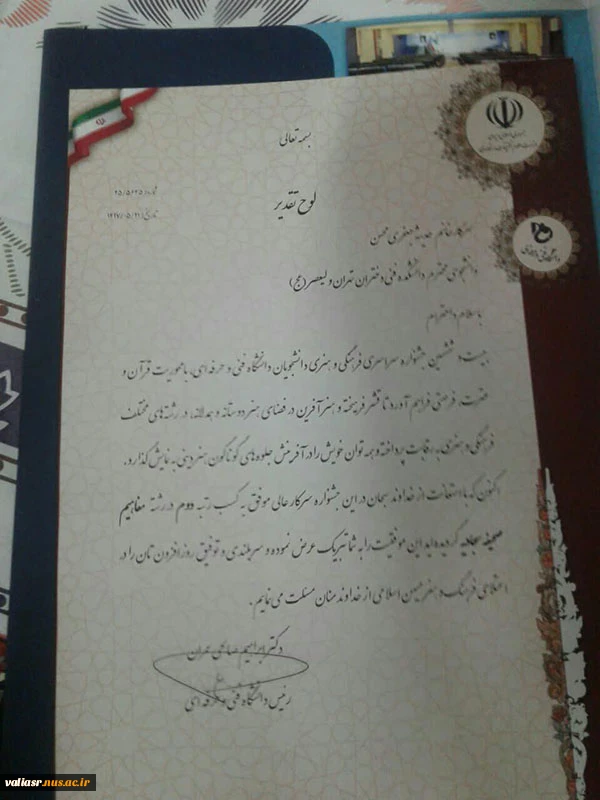 بسمه تعالی
لوح تقدیر
سرکار خانم حدیث جعفری محسن
دانشجوی محترم دانشکده فنی دختران تهران ولیعصر (عج)
با سلام و احترام
بیست و ششمین جشنواره سراسری فرهنگی و هنری دانشجویان دانشگاه فنی و حرفه ای، با محوریت قرآن و
عترت، فرصتی فراهم آورد تا قشر فرهیخته و هنرآفرین در فضای هنر دوستانه و همدلانه، در رشته های مختلف
فرهنگی و هنری به رقابت پرداخته و همه توان خویش را در آفرینش جلوه های گوناگون هنر دینی به نمایش گذارد.
اکنون که با استعانت از خداوند سبحان در این جشنواره سرکار عالی موفق به کسب رتبه دوم در رشته مفاهیم
صحیفه سجادیه گردیده اید این موفقیت را به شما تبریک عرض نموده و سربلندی و توفیق روزافزون تان را در
اعتلای فرهنگ و هنر میهن اسلامی از خداوند منان مسئلت می نمایم.
دکتر ابراهیم صالحی عمران
رئیس دانشگاه فنی و حرفه ای
valiasr.nus.ac.ir